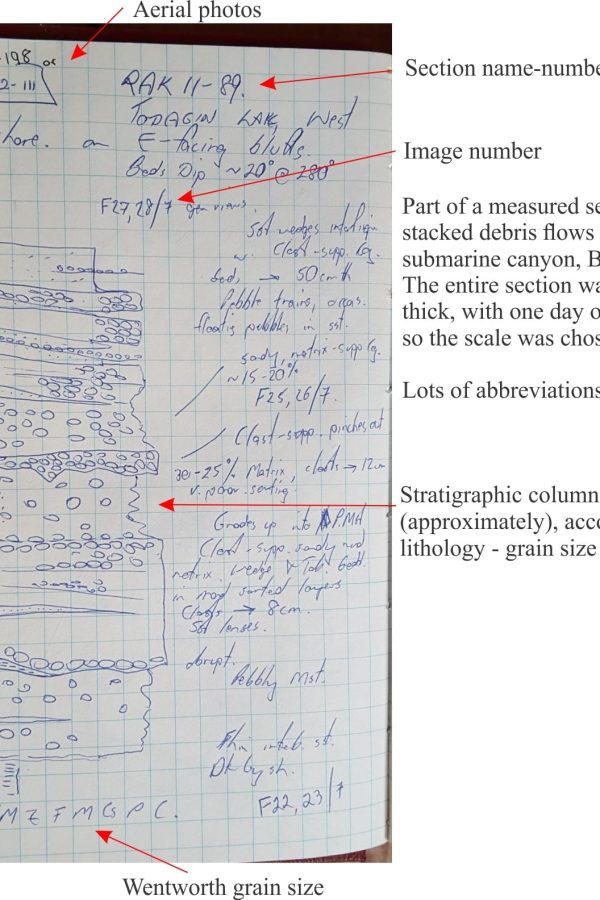 Aerial photos
-198 or
2-111
RAK 11-89.
Section name-numbe
TODAGIN LAKE, West
hore. on E-facing bluffs.
Beds Dip ~20° @ 280°
Image number
F27,28/7 gen views.
Part of a measured se
stacked debris flows
submarine canyon, B
The entire section wa
thick, with one day o
so the scale was chos
Lots of abbreviations
Sst wedges
w. Clast-supp. Cg.
beds → 50cm th
Pebble trains, occas.
floating pebbles in sst.
sandy, matrix-supp Cg.
~15-20%
F25,26/7.
Clast-supp. pinches out
25% Matrix, clasts → 12cm
v. poor sorting.
Stratigraphic column
(approximately), acco
lithology - grain size
Grades up into PMA
Clast-supp. sandy mud
matrix. Wedge &
in most sorted layers
Clasts → 8cm.
Sst lenses.
abrupt.
Pebbly Mst.
Thin interb. sst.
Dk Gy sh.
F22,23/7
M Z F M CS P C.
Wentworth grain size